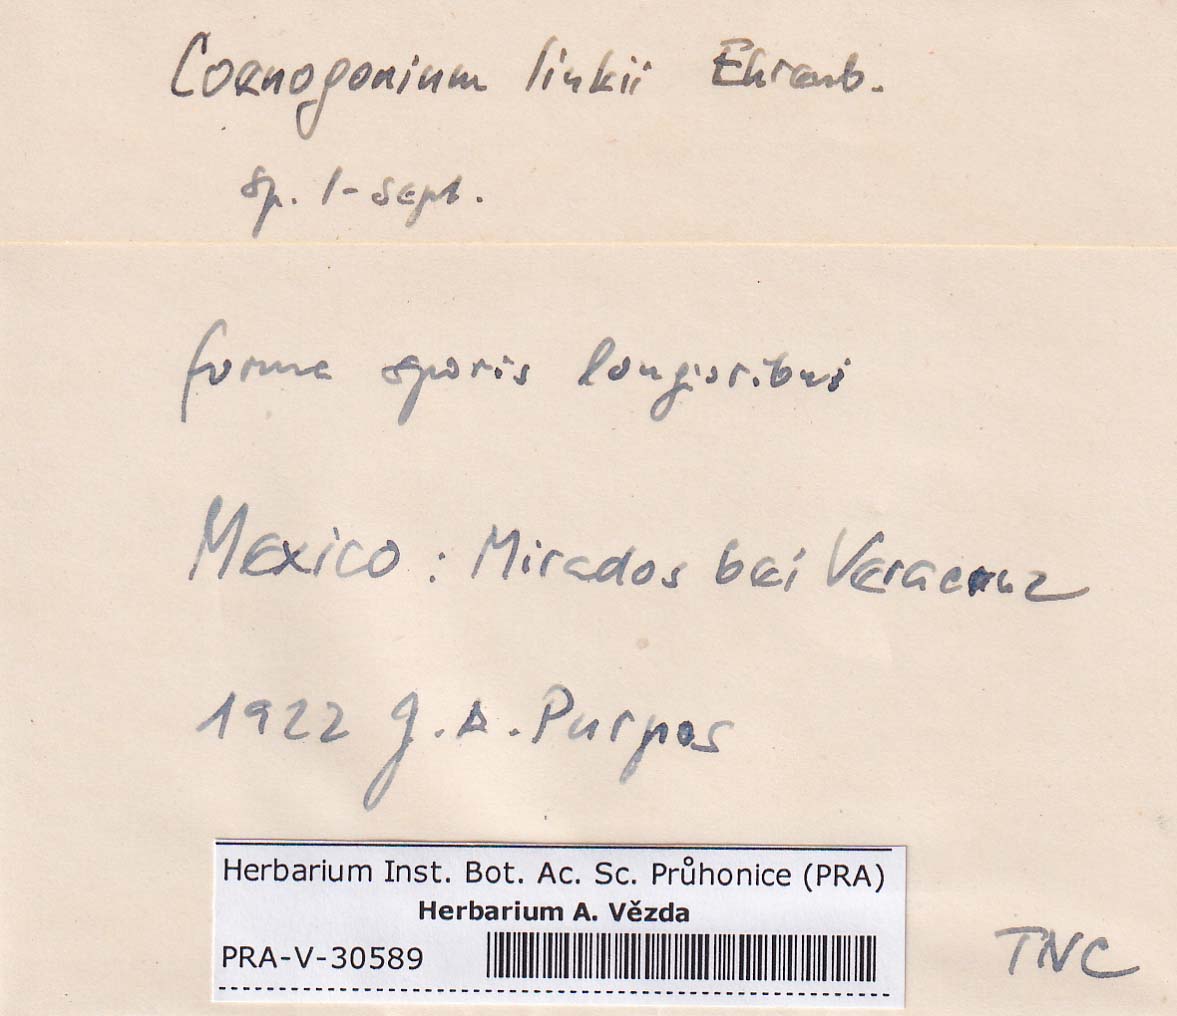 Coenogonium linkii Ehrenb.
sp. 1-sept.
forma sporis longioribus
Mexico: Mirados bei Veracruz
1922 J.A. Purpos
Herbarium Inst. Bot. Ac. Sc. Průhonice (PRA)
Herbarium A. Vězda
PRA-V-30589
TNC